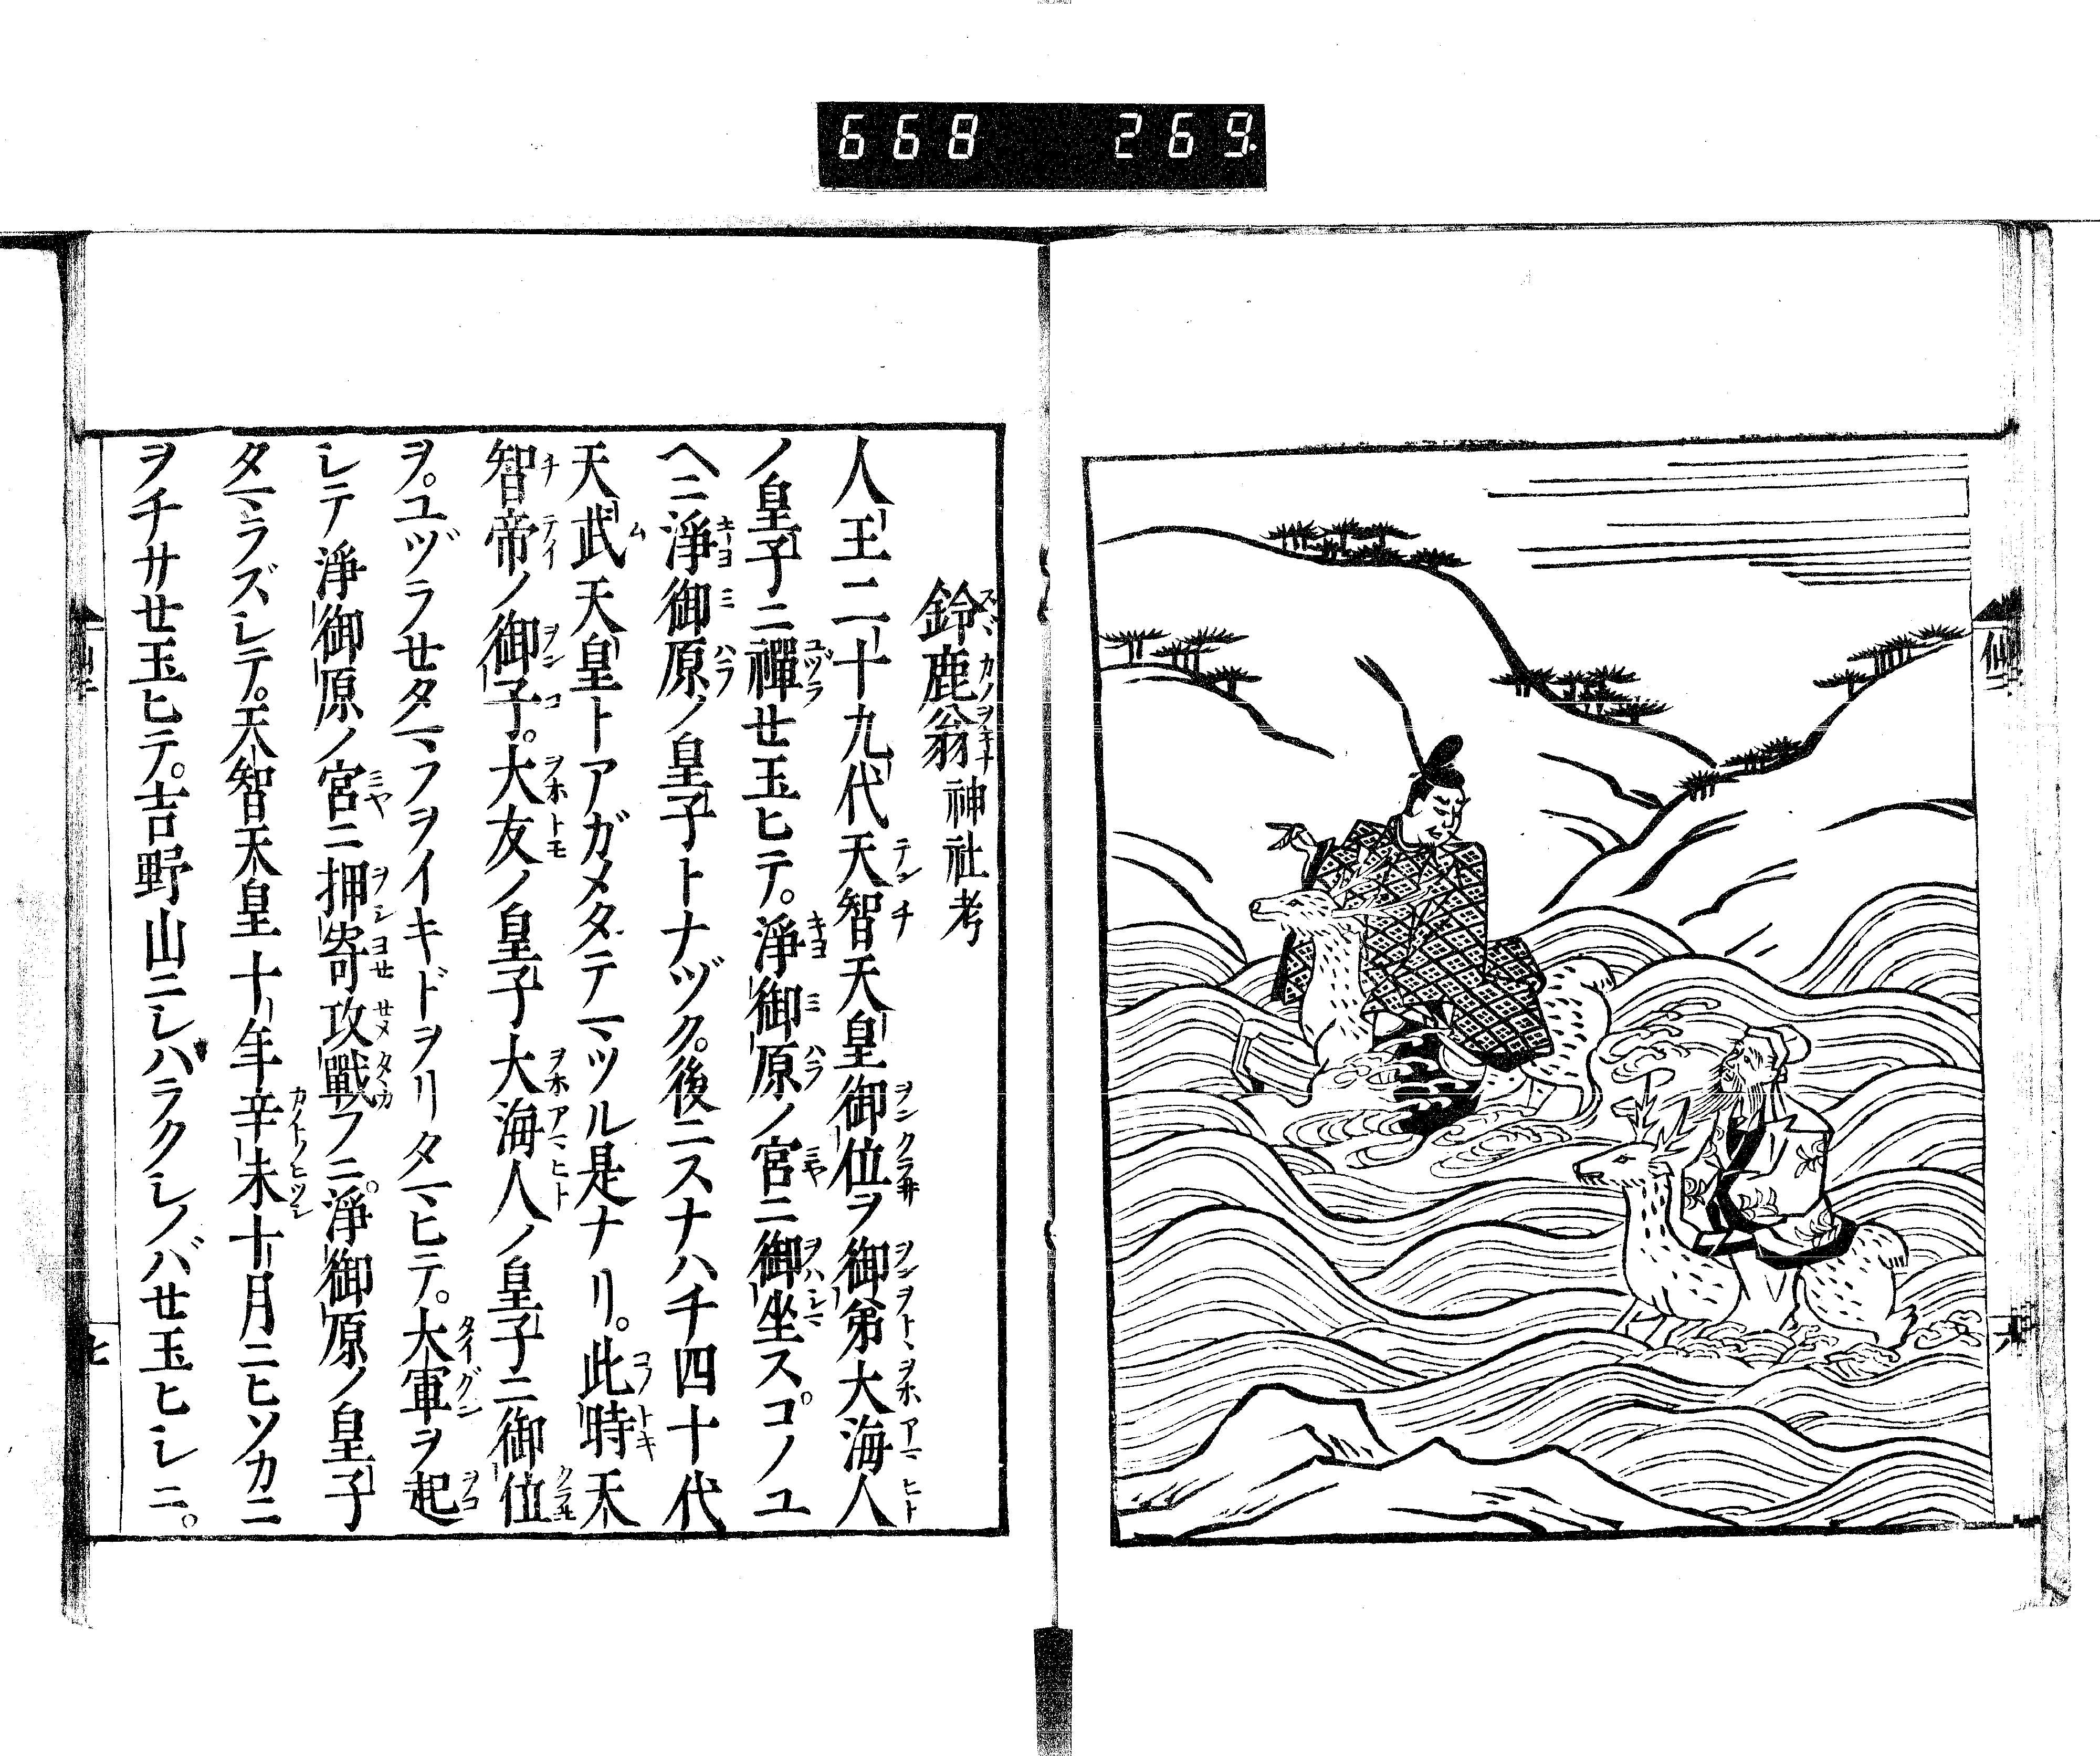 668 269
鈴鹿翁 神社考
人王二十九代天智天皇御位ヲ御弟大海人
ノ皇子ニ禪せ玉ヒテ。淨御原ノ宮ニ御坐ス。コノユ
ヘニ淨御原ノ皇子トナヅク。後ニスナハチ四十代
天武天皇トアガメタテマツル是ナリ。此時天
智帝ノ御子。大友ノ皇子大海人ノ皇子ニ御位
ヲ。ユヅラせタマフヲイキドヲリタマヒテ。大軍ヲ起
シテ淨御原ノ宮ニ押寄攻戰フニ。淨御原ノ皇子
タマラズシテ。天智天皇十年辛未十月ニヒソカニ
ヲチサせ玉ヒテ。吉野山ニシバラクシノバせ玉ヒシニ。
七